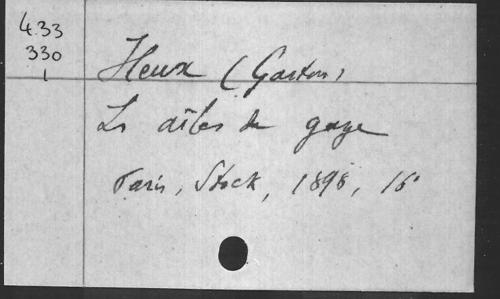 433
330
1
Heux (Gaston)
Les ailes de gaze
Paris, Stock, 1898, 16°